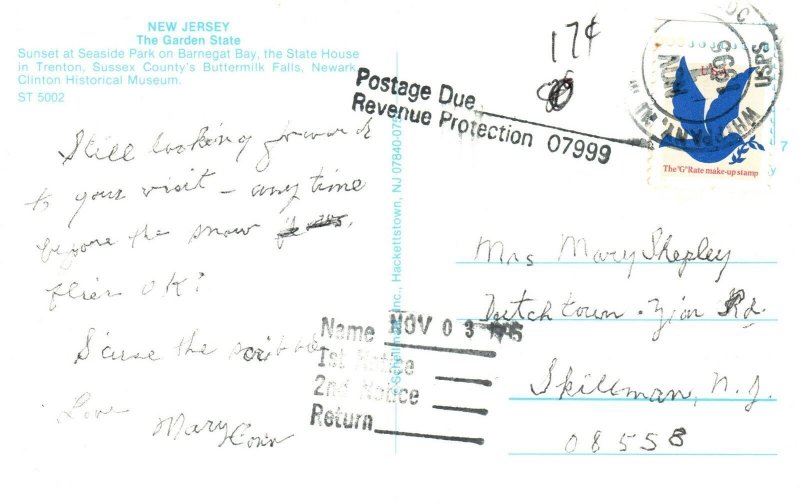 NEW JERSEY
The Garden State
Sunset at Seaside Park on Barnegat Bay, the State House
in Trenton, Sussex County's Buttermilk Falls, Newark,
Clinton Historical Museum.
ST 5002
Still looking forward
to your visit - any time
before the snow
flies OK?
S'cuse the scribble
Love
Mary Conn
Inc., Hackettstown, NJ 07840-07
17¢
Postage Due
Revenue Protection 07999
USPS
The "G" Rate make-up stamp
Mrs Mary Shepley
Dutchtown-Zion Rd.
Skillman, N.J.
08558
Name NOV 03 1995
1st Notice
2nd Notice
Return